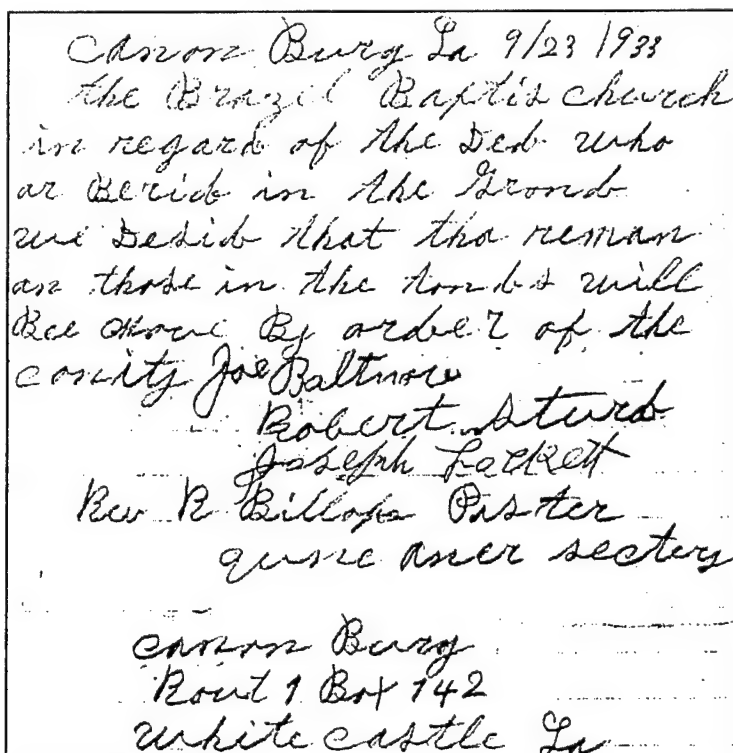 canon Burg La 9/23 1933
the Brazil Baptis church
in regard of the Ded who
ar Berid in the Grond
we Desid that tha reman
an those in the tombs will
Bee move By order of the
comity Joe Baltmore
Robert Sturd
Joseph Lockett
Rev R Billops Paster
secters
canon Burg
Rout 1 Box 142
White castle La